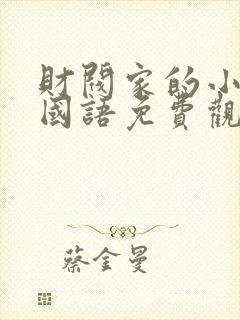 財閥家的小
國語免費觀
蔡金曼